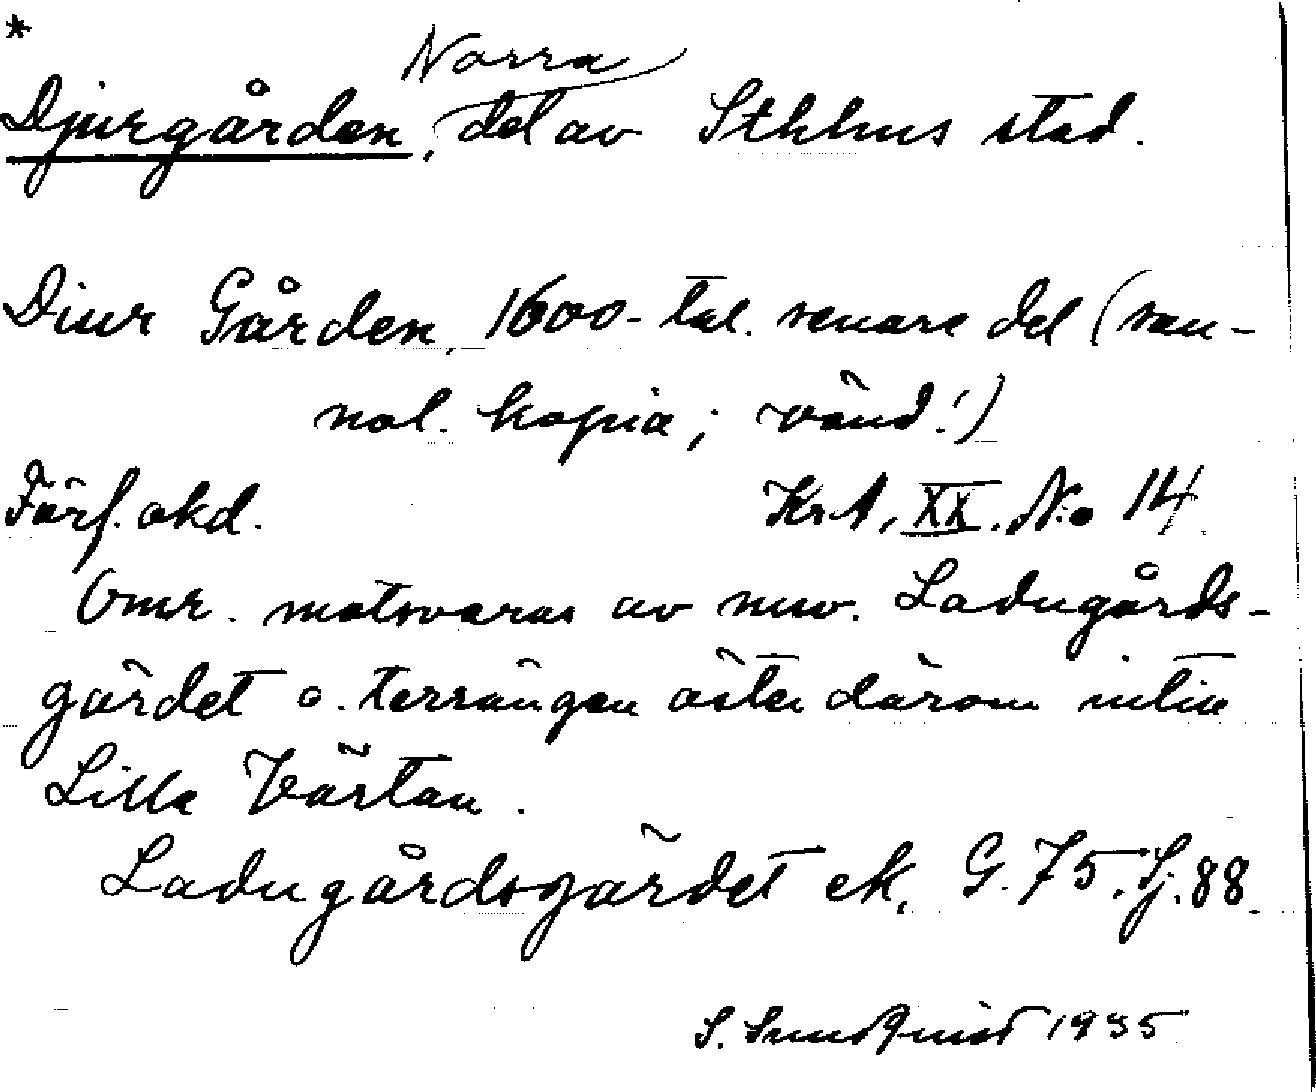 *
Norra
Djurgården, del av Sthlms stad.
Diur Gården, 1600-tal. senare del (san-
nol. kopia; vänd!)
Förf. okd. KrA, XX. No 14
Omr. motsvaras av nuv. Ladugårds-
gärdet o. terrängen öster därom intill
Lilla Värtan.
Ladugårdsgärdet ek, G. 75. Sj. 88
S. Sundquist 1935